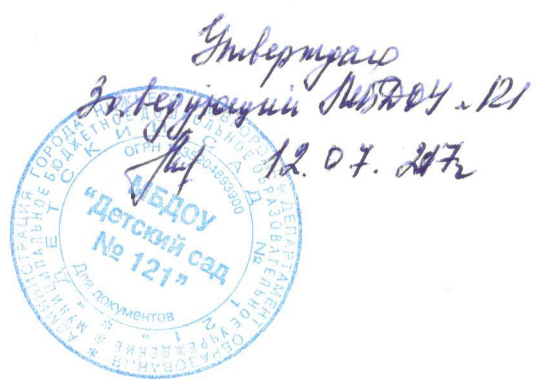 Утверждаю
Заведующий МБДОУ № 121
12.07.2017г
АДМИНИСТРАЦИЯ ГОРОДА * ДЕПАРТАМЕНТ ОБРАЗОВАНИЯ *
МУНИЦИПАЛЬНОЕ БЮДЖЕТНОЕ ДОШКОЛЬНОЕ ОБРАЗОВАТЕЛЬНОЕ УЧРЕЖДЕНИЕ *
ДЕТСКИЙ САД № 121
ОГРН
МБДОУ
"Детский сад
№ 121"
Для документов